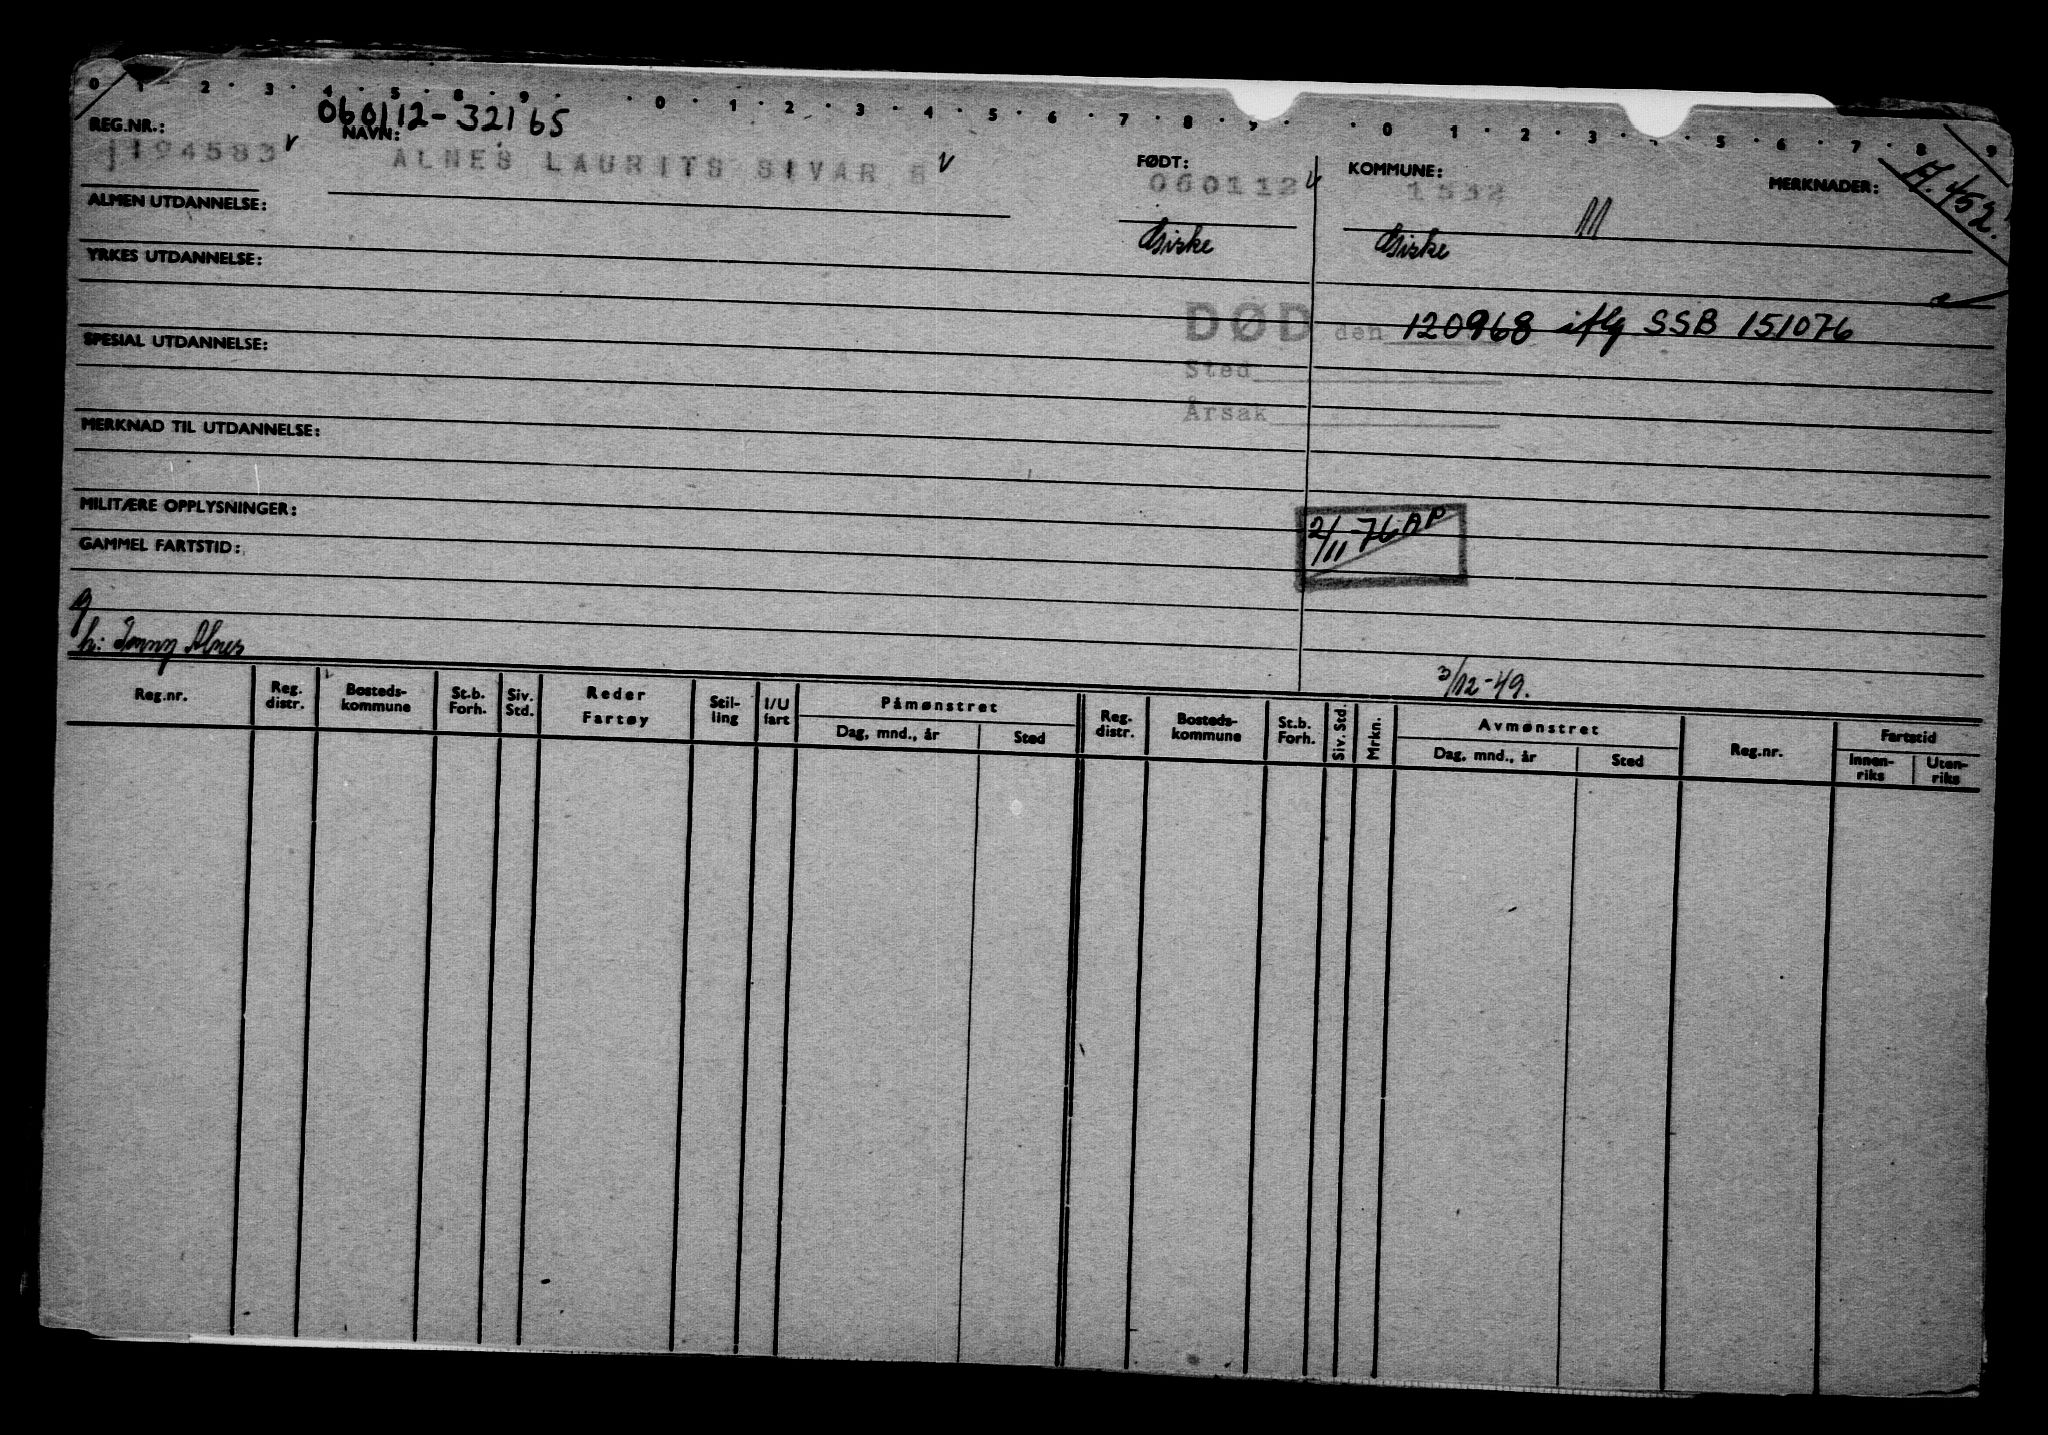 0 1 2 · 3 · 4 · 5 · 8 · 9 · · 0 · 1 · 2 · 3 · 4 · 5 · 6 · 7 · 8 · 9 · · 0 1 · 2 · 3 · · 5 · 6 · 7 · 8 · 9
060112-32165
REG.NR.: NAVN: FØDT: KOMMUNE: MERKNADER:
194583 v ALNES LAURITS SIVAR v 060112 v 1532 A. 452.
ALMEN UTDANNELSE: Giske Giske
YRKES UTDANNELSE:
DØD den 120968 iflg SSB 151076
SPESIAL UTDANNELSE: Sted
Årsak
MERKNAD TIL UTDANNELSE:
MILITÆRE OPPLYSNINGER: 2/11-76 AP
GAMMEL FARTSTID:
g
h: Jenny Alnes
3/12-49.
Reg.nr. Reg. distr. Bosteds- kommune St.b. Forh. Siv. Std. Reder Fartøy Stil- ling I/U fart Påmønstret Dag, mnd., år Sted Reg. distr. Bosteds- kommune St.b. Forh. Siv. Std. Mrkn. Avmønstret Dag, mnd., år Sted Reg.nr. Fartstid Innen- riks Uten- riks